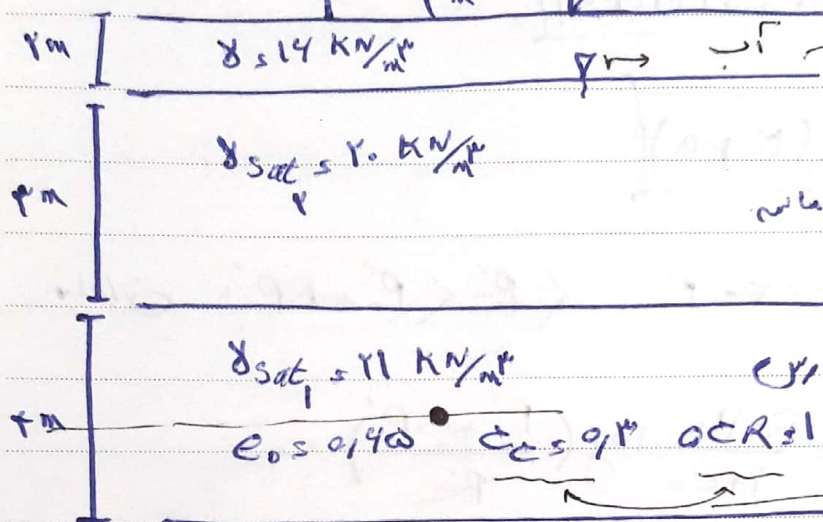 ۲m γ = ۱۶ KN/m۳ آب
γsat۲ = ۲۰ KN/m۳
m ماسه
γsat۱ = ۲۱ KN/m۳ رس
۴m e۰ = ۰,۶۵ Cc = ۰,۳ OCR = ۱